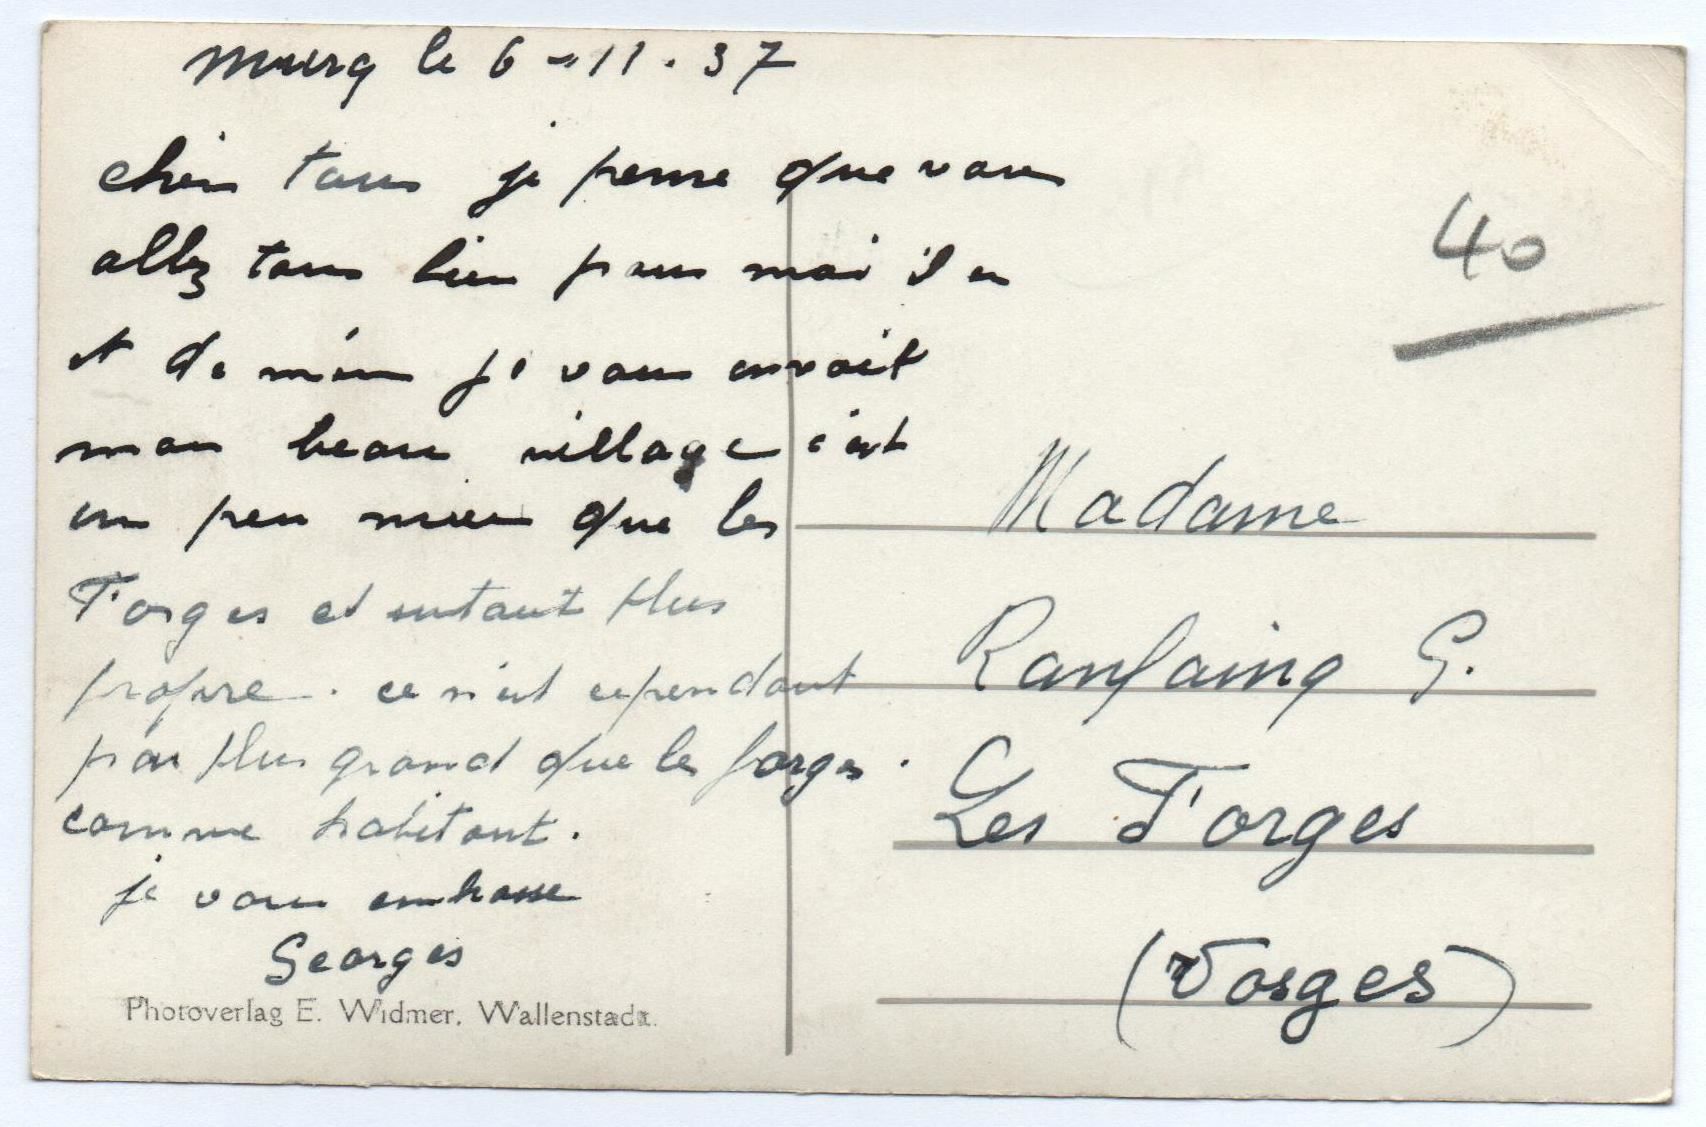 Murg le 6-11.37
chers tous je pense que vous
allez tous bien pour moi il en
est de même je vous envoit
mon beau village c'est
un peu mieu que les
Forges et surtout plus
propre. ce n'est cependant
pas plus grand que les forges.
comme habitant.
je vous embrasse
Georges
Photoverlag E. Widmer, Wallenstadt.
40
Madame
Ranfaing G.
Les Forges
(Vosges)